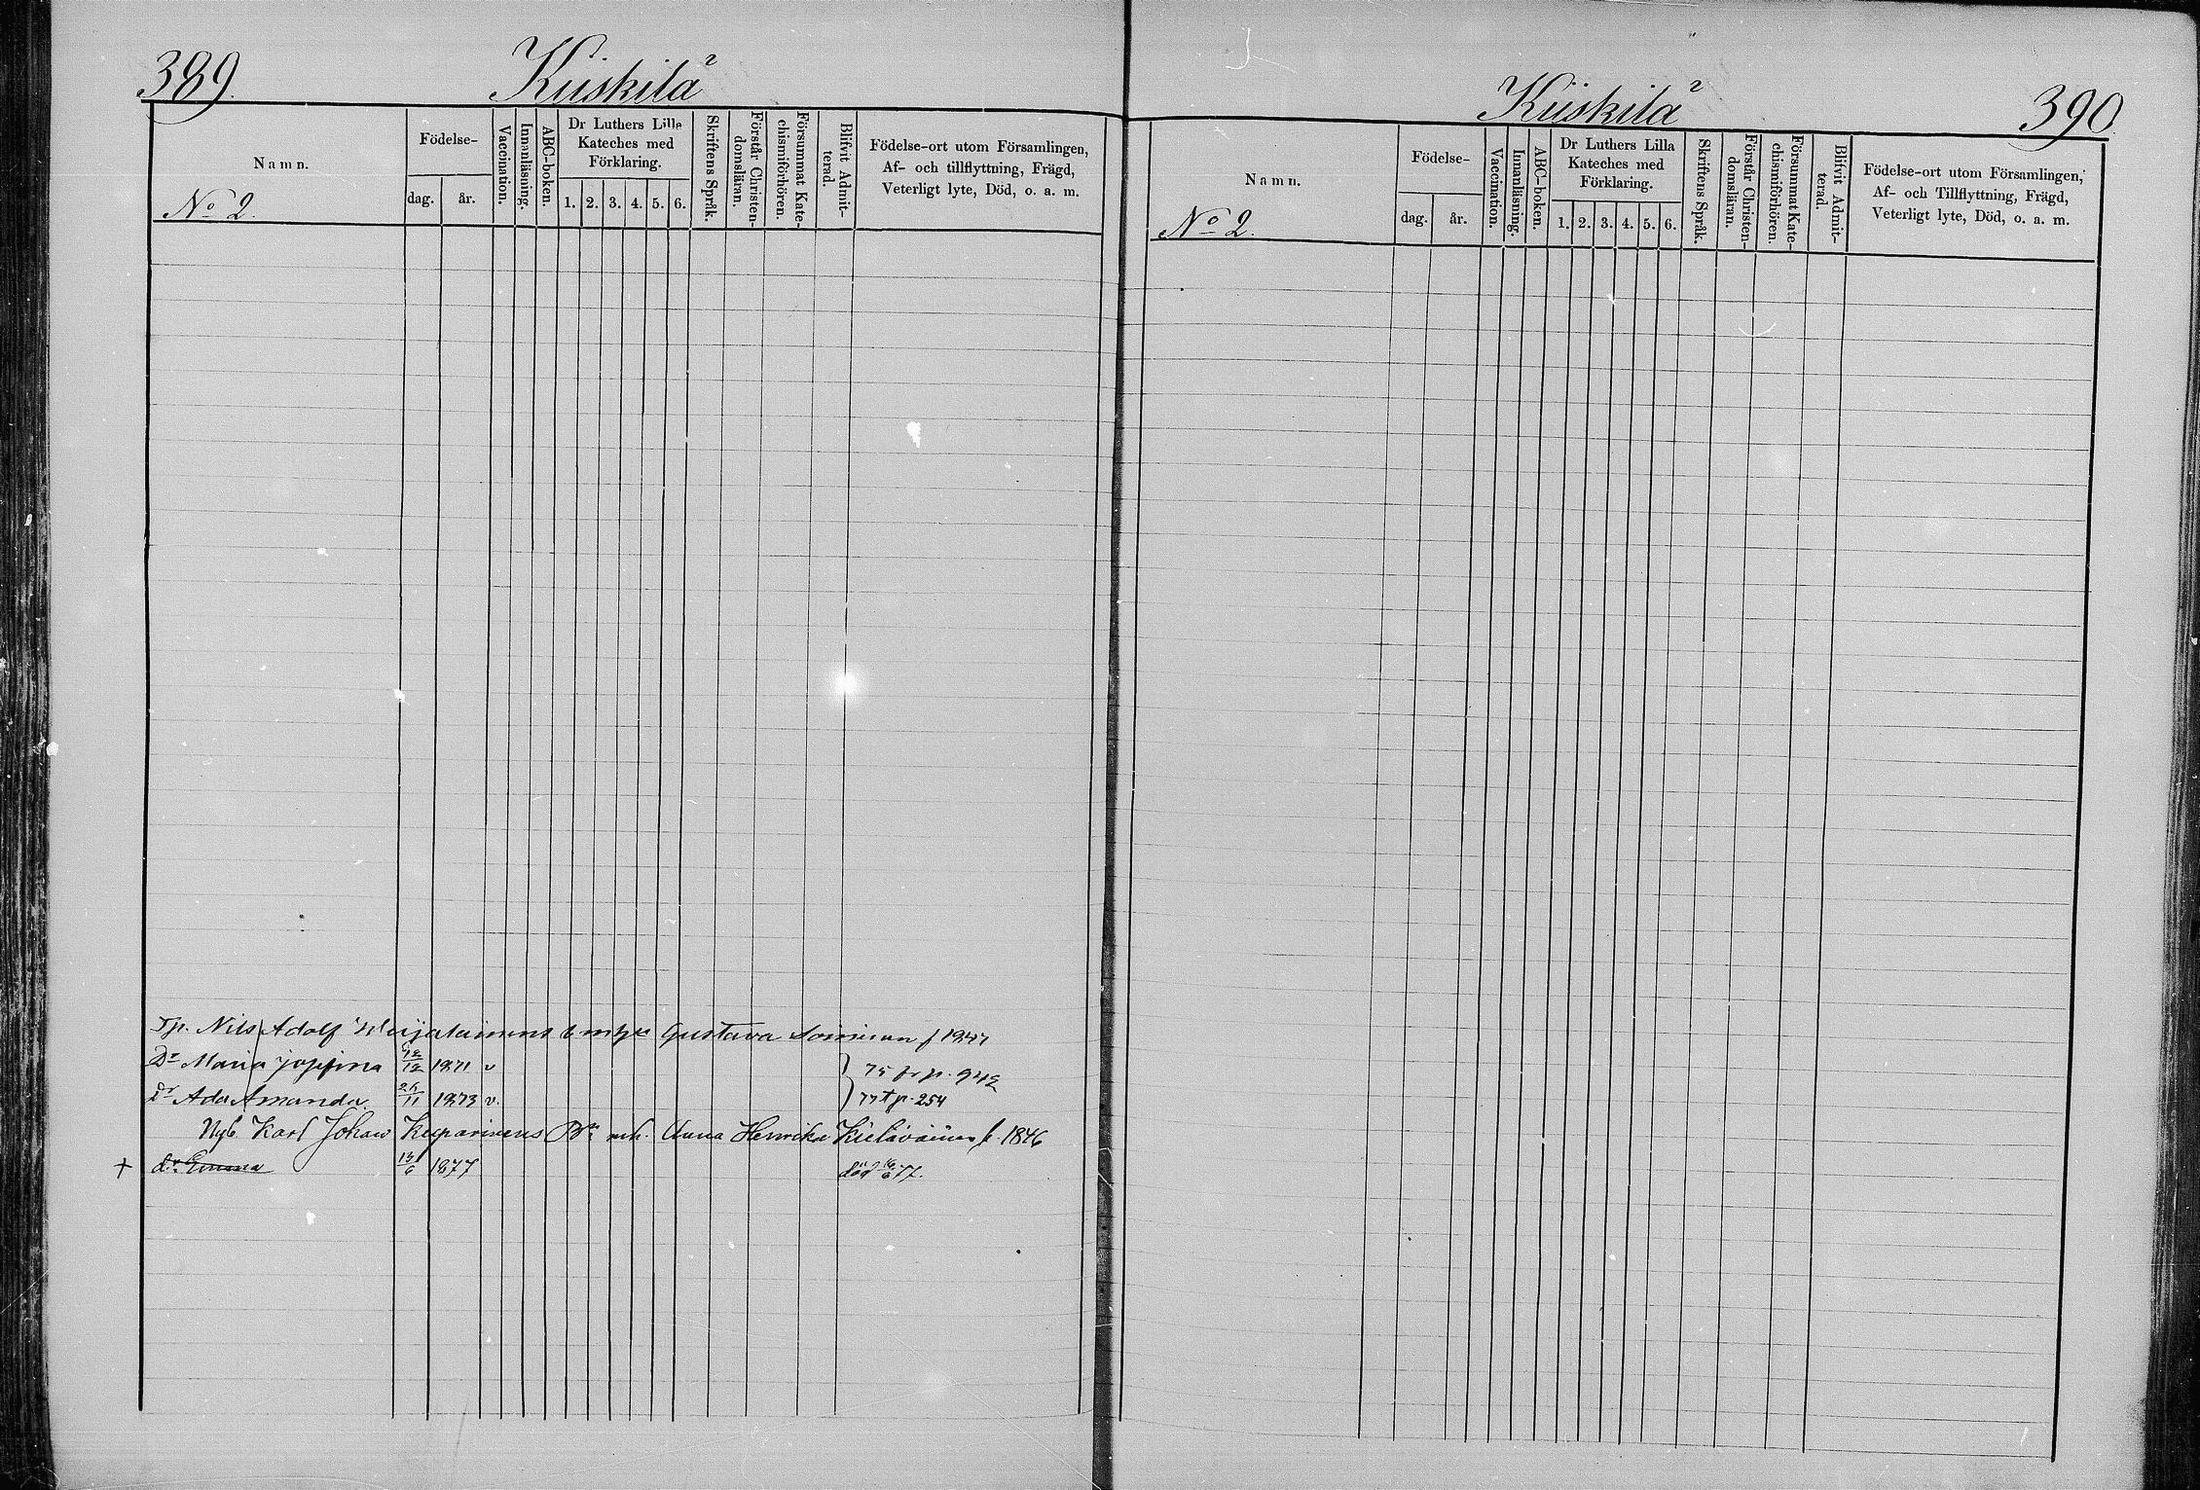 389. Kiiskilä
Namn.
No 2.
Födelse-
dag. år.
Vaccination.
Innanläsning.
ABC-boken.
Dr Luthers Lilla
Kateches med
Förklaring.
1. 2. 3. 4. 5. 6.
Skriftens Språk.
Förstår Christen-
domsläran.
Försummat Kate-
chismiförhören.
Blifvit Admit-
terad.
Födelse-ort utom Församlingen,
Af- och tillflyttning, Frägd,
Veterligt lyte, Död, o. a. m.
Nils Adolf Gustava f 1847
Dr Maria Josefina 12 1871 v 75 fr p. 942
dr Ada Amanda 11 1873 v. 77 t p. 254
Nyb. Karl Johan Anna Henrika f. 1846
+ dr. Emma 13/6 1877 död 16/6 77.
Kiiskilä 390.
Namn.
No 2.
Födelse-
dag. år.
Vaccination.
Innanläsning.
ABC-boken.
Dr Luthers Lilla
Kateches med
Förklaring.
1. 2. 3. 4. 5. 6.
Skriftens Språk.
Förstår Christen-
domsläran.
Försummat Kate-
chismiförhören.
Blifvit Admit-
terad.
Födelse-ort utom Församlingen,
Af- och Tillflyttning, Frägd,
Veterligt lyte, Död, o. a. m.